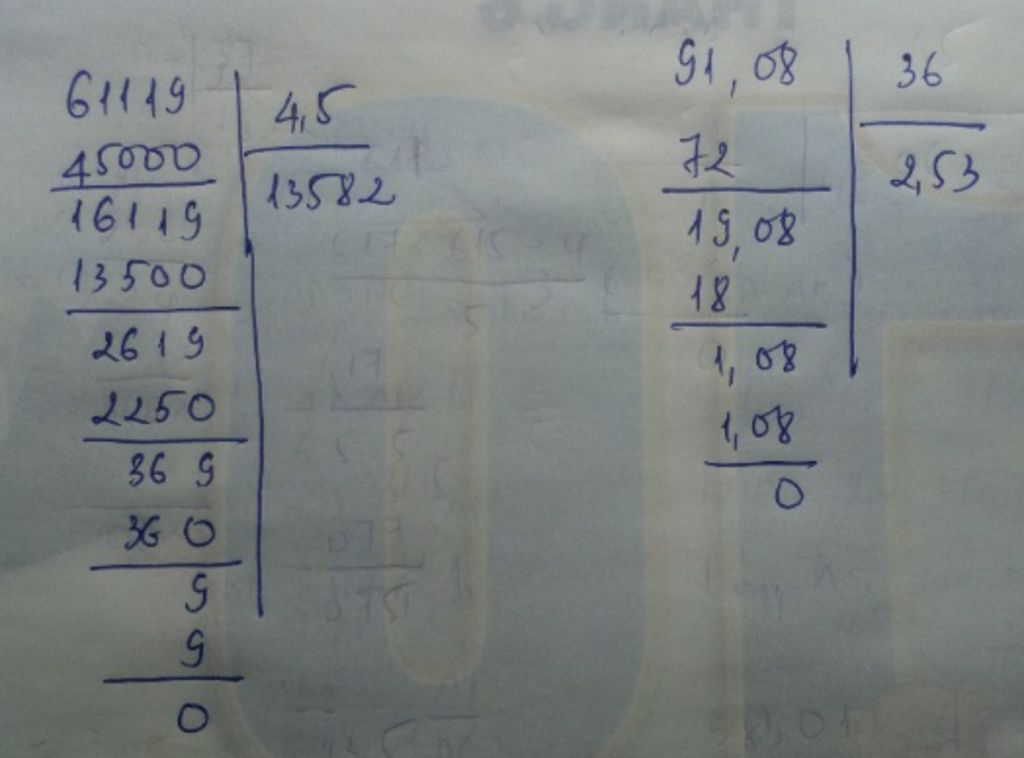 61119 4,5
45000
16119 13582
13500
2619
2250
369
360
9
9
0
91,08 36
72 2,53
19,08
18
1,08
1,08
0